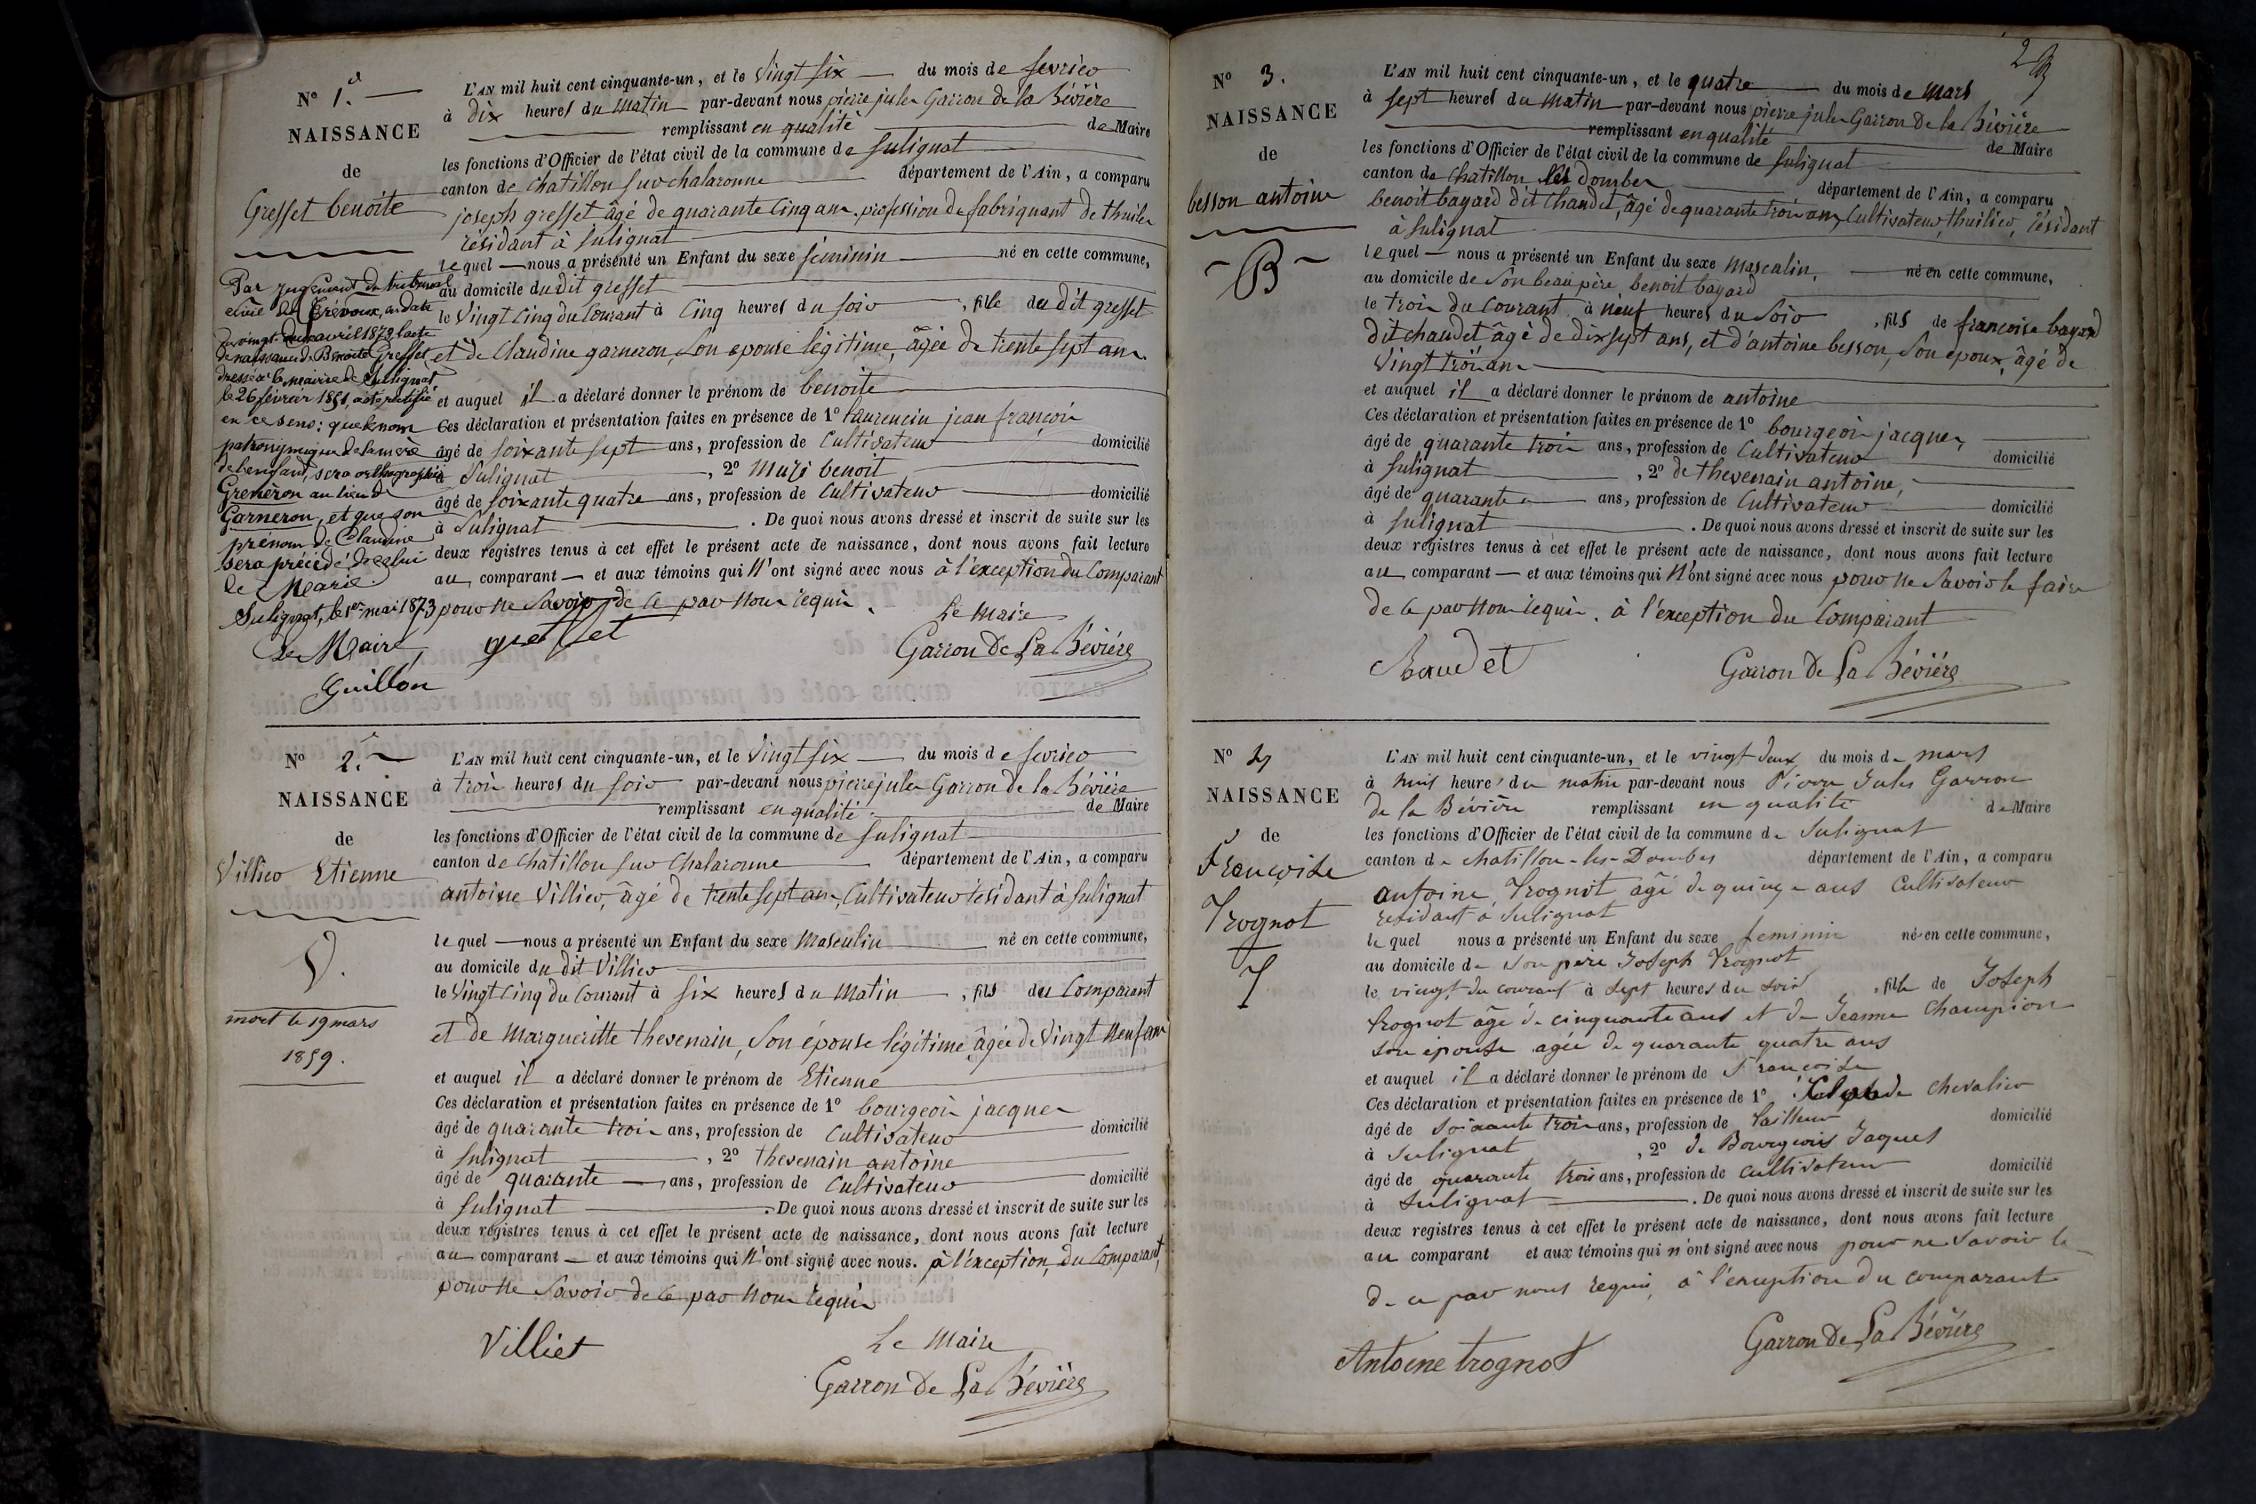 No 1er
NAISSANCE
de
Gresset benoite
Par jugement du tribunal
civil de Trévoux, en date
du vingt deux avril 1873 l'acte
de naissance de Benoite Gresset,
dressé à la mairie de Sulignat
le 26 février 1851, a été rectifié
en ce sens: que le nom
patronymique de la mère
de l'enfant, sera orthographié
Greneron au lieu de
Garneron, et que son
prénom de Claudine
sera précédé de celui
de Marie.
Sulignat, le 1er mai 1873
Le Maire,
Guillon
L'AN mil huit cent cinquante-un, et le vingt six du mois de fevrier
à dix heures du matin par-devant nous pierre jules Garron de la Bévière
remplissant en qualité de Maire
les fonctions d'Officier de l'état civil de la commune de Sulignat
canton de Chatillon sur chalaronne département de l'Ain, a comparu
joseph gresset âgé de quarante cinq ans, profession de fabriquant de thuiles
résidant à Sulignat
lequel nous a présenté un Enfant du sexe féminin né en cette commune,
au domicile du dit gresset
le vingt cinq du courant à cinq heures du soir, fille du dit gresset
et de Claudine garneron son epouse légitime, âgée de trente sept ans.
et auquel il a déclaré donner le prénom de benoite
Ces déclaration et présentation faites en présence de 1o Laurencin jean françois
âgé de soixante sept ans, profession de Cultivateur domicilié
à Sulignat, 2o Muzi benoit
âgé de soixante quatre ans, profession de Cultivateur domicilié
à Sulignat. De quoi nous avons dressé et inscrit de suite sur les
deux registres tenus à cet effet le présent acte de naissance, dont nous avons fait lecture
au comparant et aux témoins qui n'ont signé avec nous à l'exception du Comparant
pour ne savoir de ce par nous requis.
Le Maire
gresset Garron De La Bévière
No 2.
NAISSANCE
de
Villier Etienne
V.
mort le 19 mars
1859.
L'AN mil huit cent cinquante-un, et le vingt six du mois de fevrier
à trois heures du soir par-devant nous pierre jules Garron de la Bévière
remplissant en qualité de Maire
les fonctions d'Officier de l'état civil de la commune de Sulignat
canton de Chatillon sur Chalaronne département de l'Ain, a comparu
antoine Villier, âgé de trente sept ans, Cultivateur résidant à Sulignat
lequel nous a présenté un Enfant du sexe Masculin né en cette commune,
au domicile du dit Villier
le vingt cinq du courant à six heures du matin, fils du Comparant
et de Margueritte thevenain, son épouse légitime, âgée de vingt neuf ans
et auquel il a déclaré donner le prénom de Etienne
Ces déclaration et présentation faites en présence de 1o bourgeois jacques
âgé de quarante trois ans, profession de Cultivateur domicilié
à Sulignat, 2o thevenain antoine
âgé de quarante ans, profession de Cultivateur domicilié
à Sulignat. De quoi nous avons dressé et inscrit de suite sur les
deux registres tenus à cet effet le présent acte de naissance, dont nous avons fait lecture
au comparant et aux témoins qui n'ont signé avec nous. à l'exception, du Comparant,
pour ne savoir de ce par nous requis
Villiet Le Maire
Garron De La Bévière
2
No 3.
NAISSANCE
de
besson antoine
B
L'AN mil huit cent cinquante-un, et le quatre du mois de mars
à sept heures du matin par-devant nous pierre jules Garron De la Bévière
remplissant en qualité de Maire
les fonctions d'Officier de l'état civil de la commune de Sulignat
canton de Chatillon les Dombes département de l'Ain, a comparu
benoit bayard dit Chaudet, âgé de quarante trois ans, Cultivateur, thuilier, résidant
à Sulignat
lequel nous a présenté un Enfant du sexe masculin, né en cette commune,
au domicile de son beau père, benoit bayard
le trois du courant à neuf heures du soir, fils de françoise bayard
dit chaudet âgé de dix sept ans, et d'antoine besson, son époux, âgé de
vingt trois ans
et auquel il a déclaré donner le prénom de antoine
Ces déclaration et présentation faites en présence de 1o bourgeois jacques,
âgé de quarante trois ans, profession de Cultivateur domicilié
à Sulignat, 2o de thevenain antoine,
âgé de quarante ans, profession de Cultivateur domicilié
à Sulignat. De quoi nous avons dressé et inscrit de suite sur les
deux registres tenus à cet effet le présent acte de naissance, dont nous avons fait lecture
au comparant et aux témoins qui n'ont signé avec nous pour ne savoir le faire
de ce par nous requis. à l'exception du Comparant
Chaudet Garron De La Bévière
No 4
NAISSANCE
de
Françoise
Trognot
T
L'AN mil huit cent cinquante-un, et le vingt deux du mois de mars
à huit heures du matin par-devant nous Pierre Jules Garron
de la Bévière remplissant en qualité de Maire
les fonctions d'Officier de l'état civil de la commune de Sulignat
canton de chatillon-les-Dombes département de l'Ain, a comparu
antoine Trognot âgé de quinze ans Cultivateur
résidant à Sulignat
lequel nous a présenté un Enfant du sexe feminin né en cette commune,
au domicile de son père Joseph Trognot
le vingt du courant à sept heures du soir, fille de Joseph
Trognot âgé de cinquante ans et de Jeanne Champion
son épouse agée de quarante quatre ans
et auquel il a déclaré donner le prénom de Françoise
Ces déclaration et présentation faites en présence de 1o Claude Chevalier
âgé de soixante trois ans, profession de tailleur domicilié
à Sulignat, 2o de Bourgeois Jaques
âgé de quarante trois ans, profession de cultivateur domicilié
à Sulignat. De quoi nous avons dressé et inscrit de suite sur les
deux registres tenus à cet effet le présent acte de naissance, dont nous avons fait lecture
au comparant et aux témoins qui n'ont signé avec nous pour ne savoir le
de ce par nous requis, à l'exception du comparant
Antoine trognot Garron De La Bévière